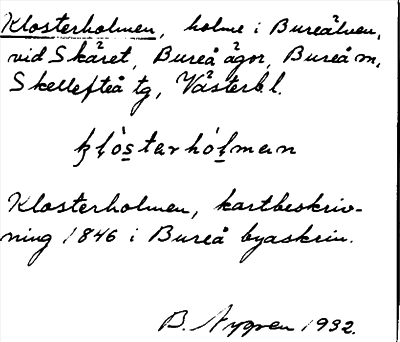 Klosterholmen, holme i Bureälven,
vid Skäret, Bureå ägor, Bureå m,
Skellefteå tg, Västerb l.
klòstarhólman
Klosterholmen, kartbeskriv-
ning 1846 i Bureå byaskrin.
B. Nygren 1932.